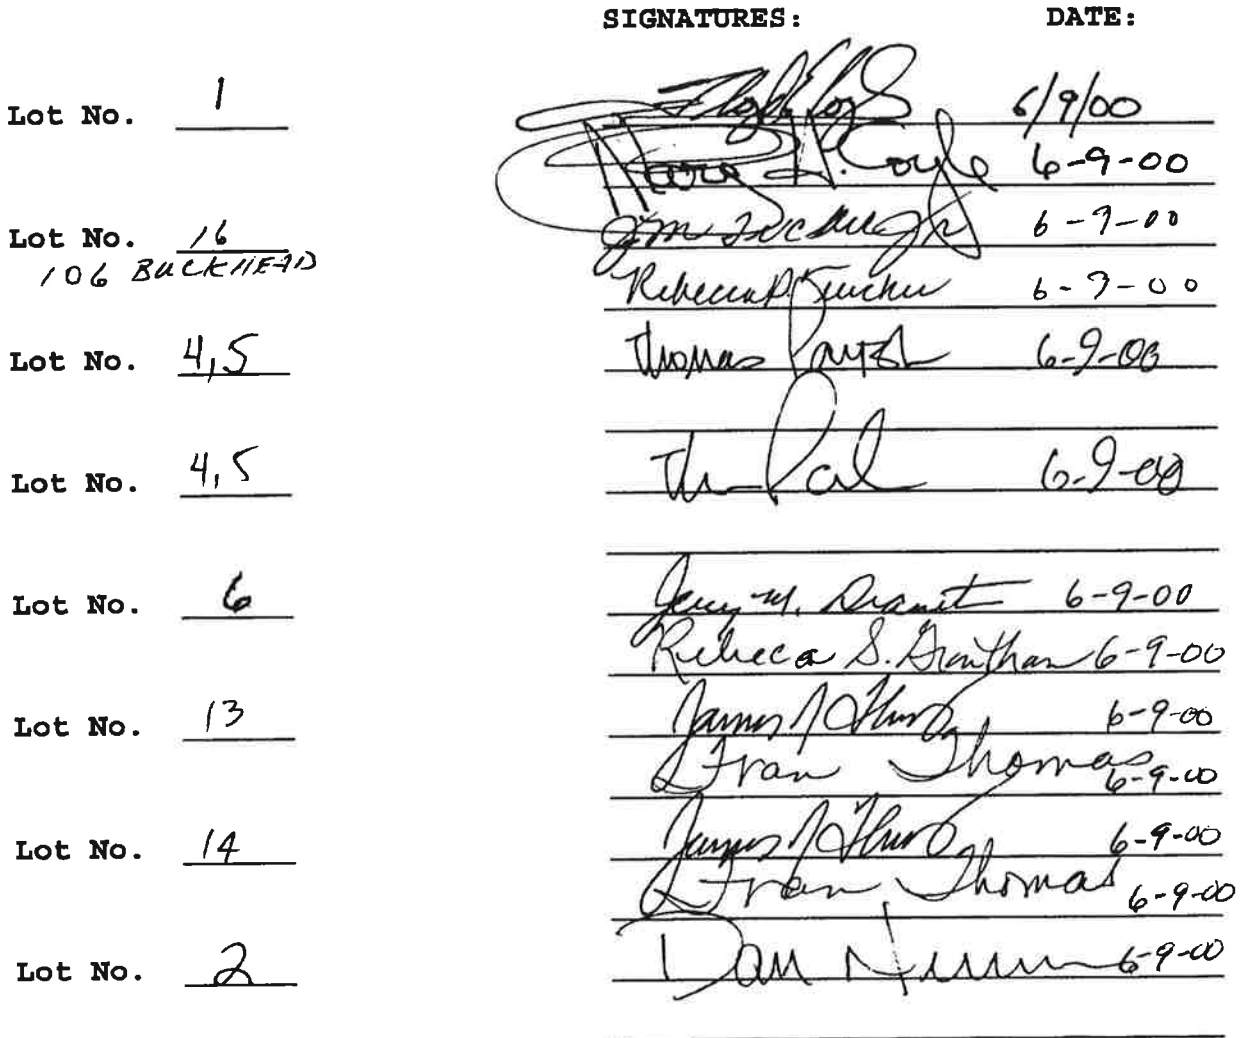 SIGNATURES: DATE:
Lot No. 1 6/9/00
Mary H. Coyle 6-9-00
Lot No. 16 6-9-00
106 BUCKHEAD
Rebecca P. 6-9-00
Lot No. 4,5 Thomas 6-9-00
Lot No. 4,5 6-9-00
Lot No. 6 Jerry M. 6-9-00
Rebecca S. Grantham 6-9-00
Lot No. 13 James 6-9-00
Fran Thomas 6-9-00
Lot No. 14 James 6-9-00
Fran Thomas 6-9-00
Lot No. 2 Dan 6-9-00